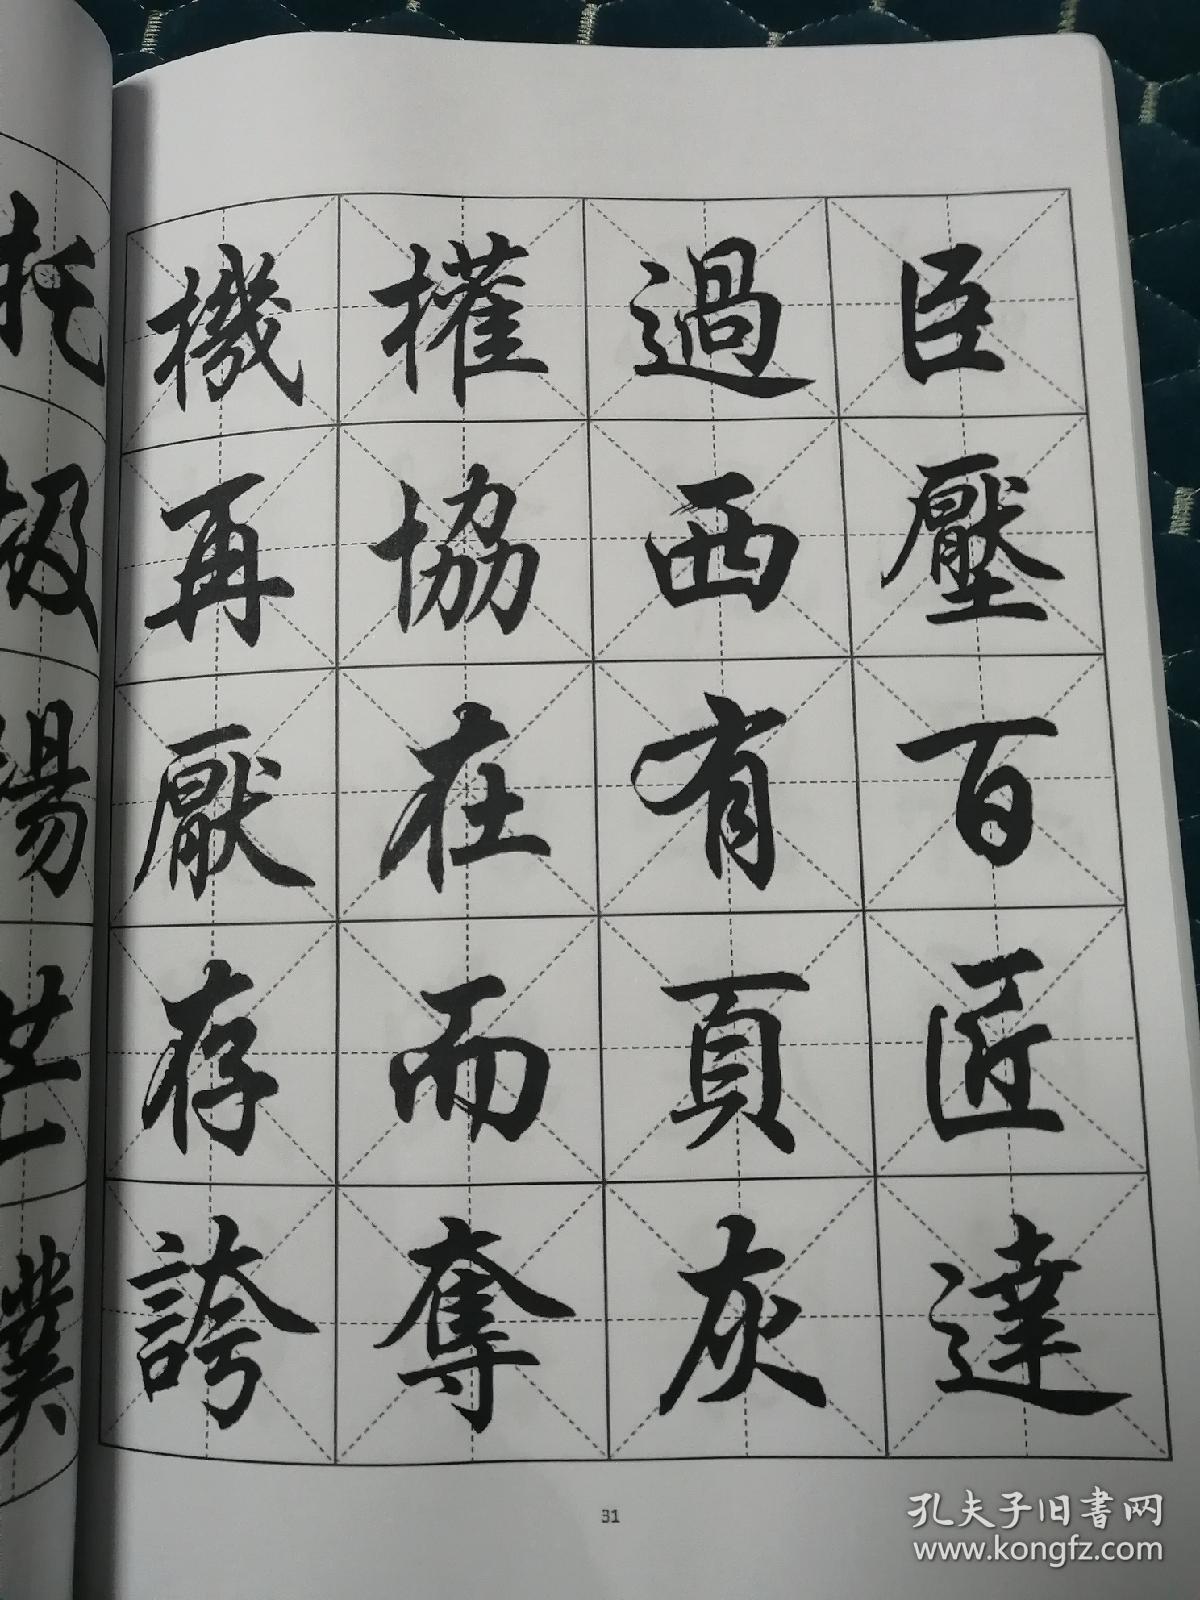 托
機權過臣
再協西壓
厭在有百
存而頁匠
誇奪灰達
31
孔夫子旧書网
www.kongfz.com